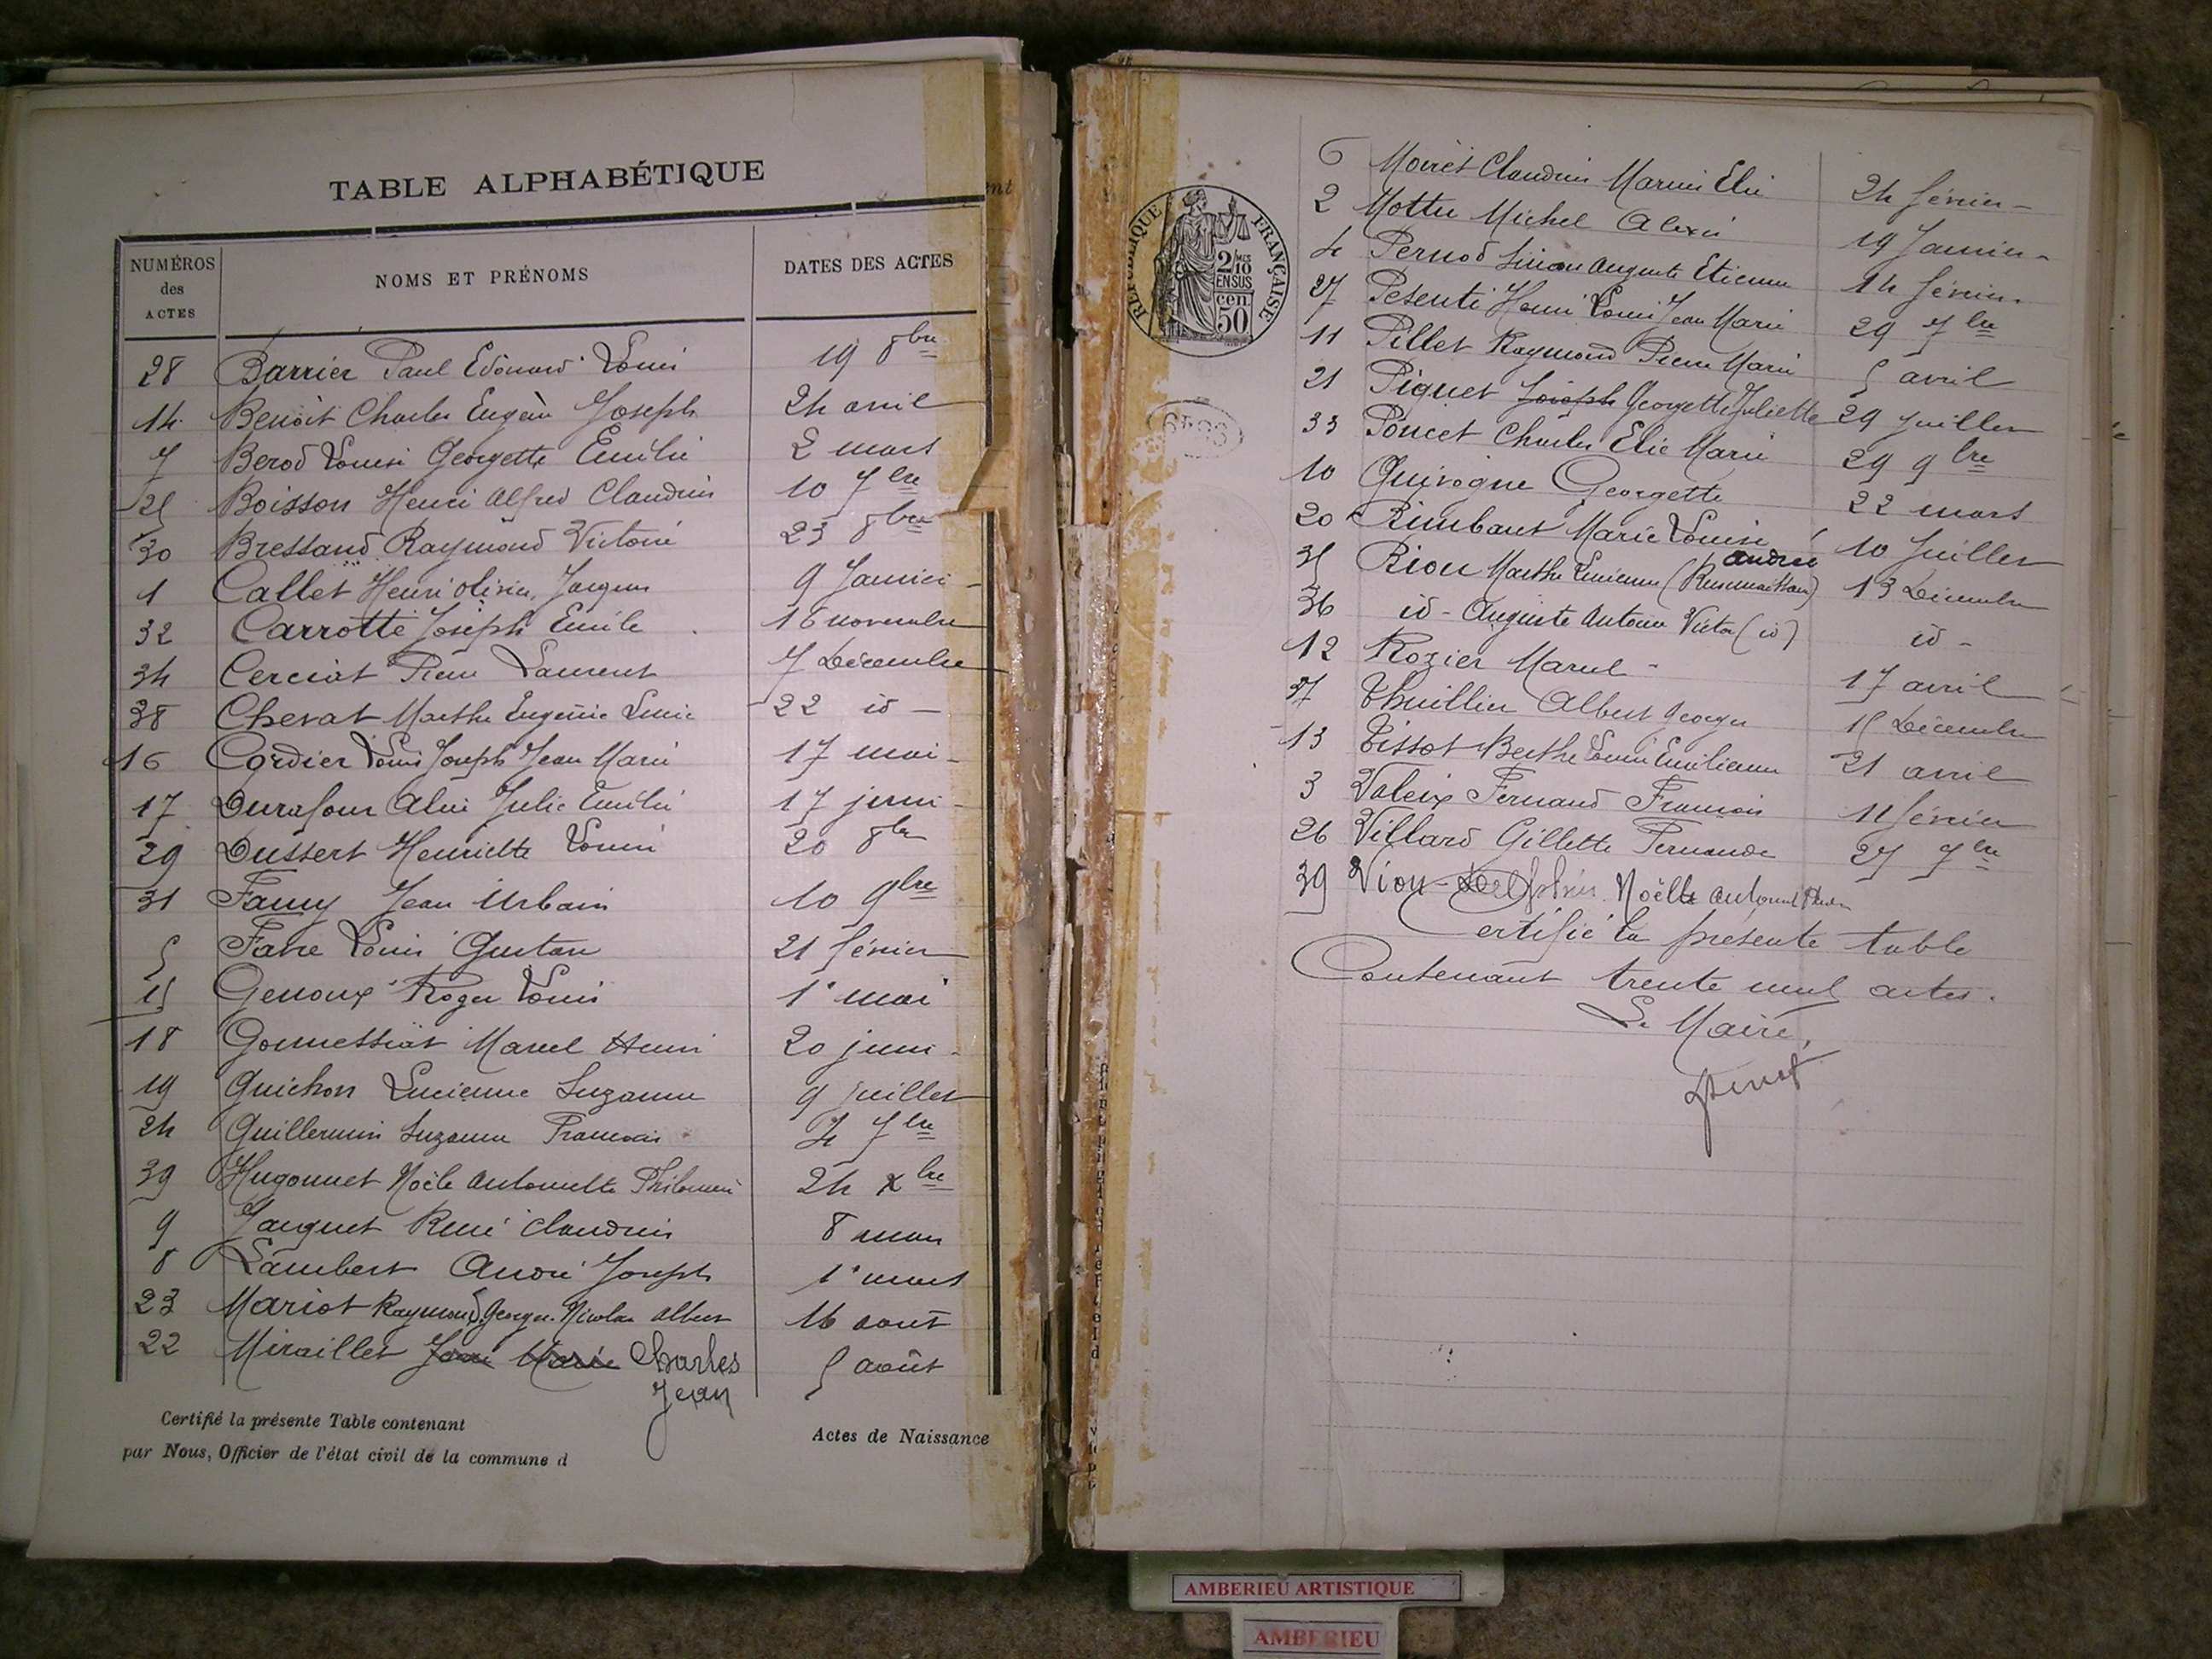 TABLE ALPHABÉTIQUE
NUMÉROS des ACTES NOMS ET PRÉNOMS DATES DES ACTES
28 Barrier Paul Edouard Louis 19 8bre
14 Benoît Charles Eugène Joseph 24 avril
7 Berod Louise Georgette Emilie 2 mars
25 Boisson Henri Alfred Claudius 10 7bre
30 Bressand Raymond Victorin 23 8bre
1 Callet Henri Olivier Jacques 9 Janvier
32 Carrotte Joseph Emile 16 novembre
34 Cerciat Pierre Laurent 7 Décembre
38 Chevat Marthe Eugénie Lucie 22 id -
16 Cordier Louis Joseph Jean Marie 17 mai
17 Durafour Julie Emilie 17 juin
29 Dussert Henriette Louise 20 8bre
31 Famy Jean Urbain 10 9bre
5 Favre Louis Gustave 21 février
15 Genoux Roger Louis 1er mai
18 Gonnessiat Marcel Henri 20 juin
19 Guichon Lucienne Suzanne 9 juillet
24 Guillermin Suzanne 4 7bre
39 Hugonnet Noële Antoinette Philomène 24 Xbre
9 Jacquet René Claudius 8 mars
8 Lambert André Joseph 1er mars
23 Mariot Raymond Georges Nicolas Albert 16 août
22 Miraillet Jean Marie Charles 5 août
Jean
Certifié la présente Table contenant Actes de Naissance
par Nous, Officier de l'état civil de la commune d
6 Moiret Claudius Marius Elie 24 février -
2 Mottu Michel Alexis 19 Janvier -
4 Pernod Simon Auguste Etienne 14 février
27 Pesenti Henri Louis Jean Marie 29 7bre
11 Pillet Raymond Pierre Marie 5 avril
21 Piquet Joseph Georgette Juliette 29 Juillet
33 Poncet Charles Elie Marie 29 9bre
10 Quivogne Georgette 22 mars
20 Rimbaut Marie Louise 10 Juillet
andrée
35 Riou Marthe Lucienne 13 Décembre
36 id - Auguste Antoine Victor (id) id -
12 Rozier Marcel - 17 avril
37 Thuillier Albert Georges 15 Décembre
13 Tissot Berthe Louise Emilienne 21 avril
3 Valeix Fernand François 11 février
26 Villard Gillette Fernande 27 7bre
39 Viou-Delphin Noëlle
Certifié la présente table
Contenant trente neuf actes.
Le Maire,
RÉPUBLIQUE FRANÇAISE
2/10MES
EN SUS
cen.
50
AMBERIEU ARTISTIQUE
AMBERIEU